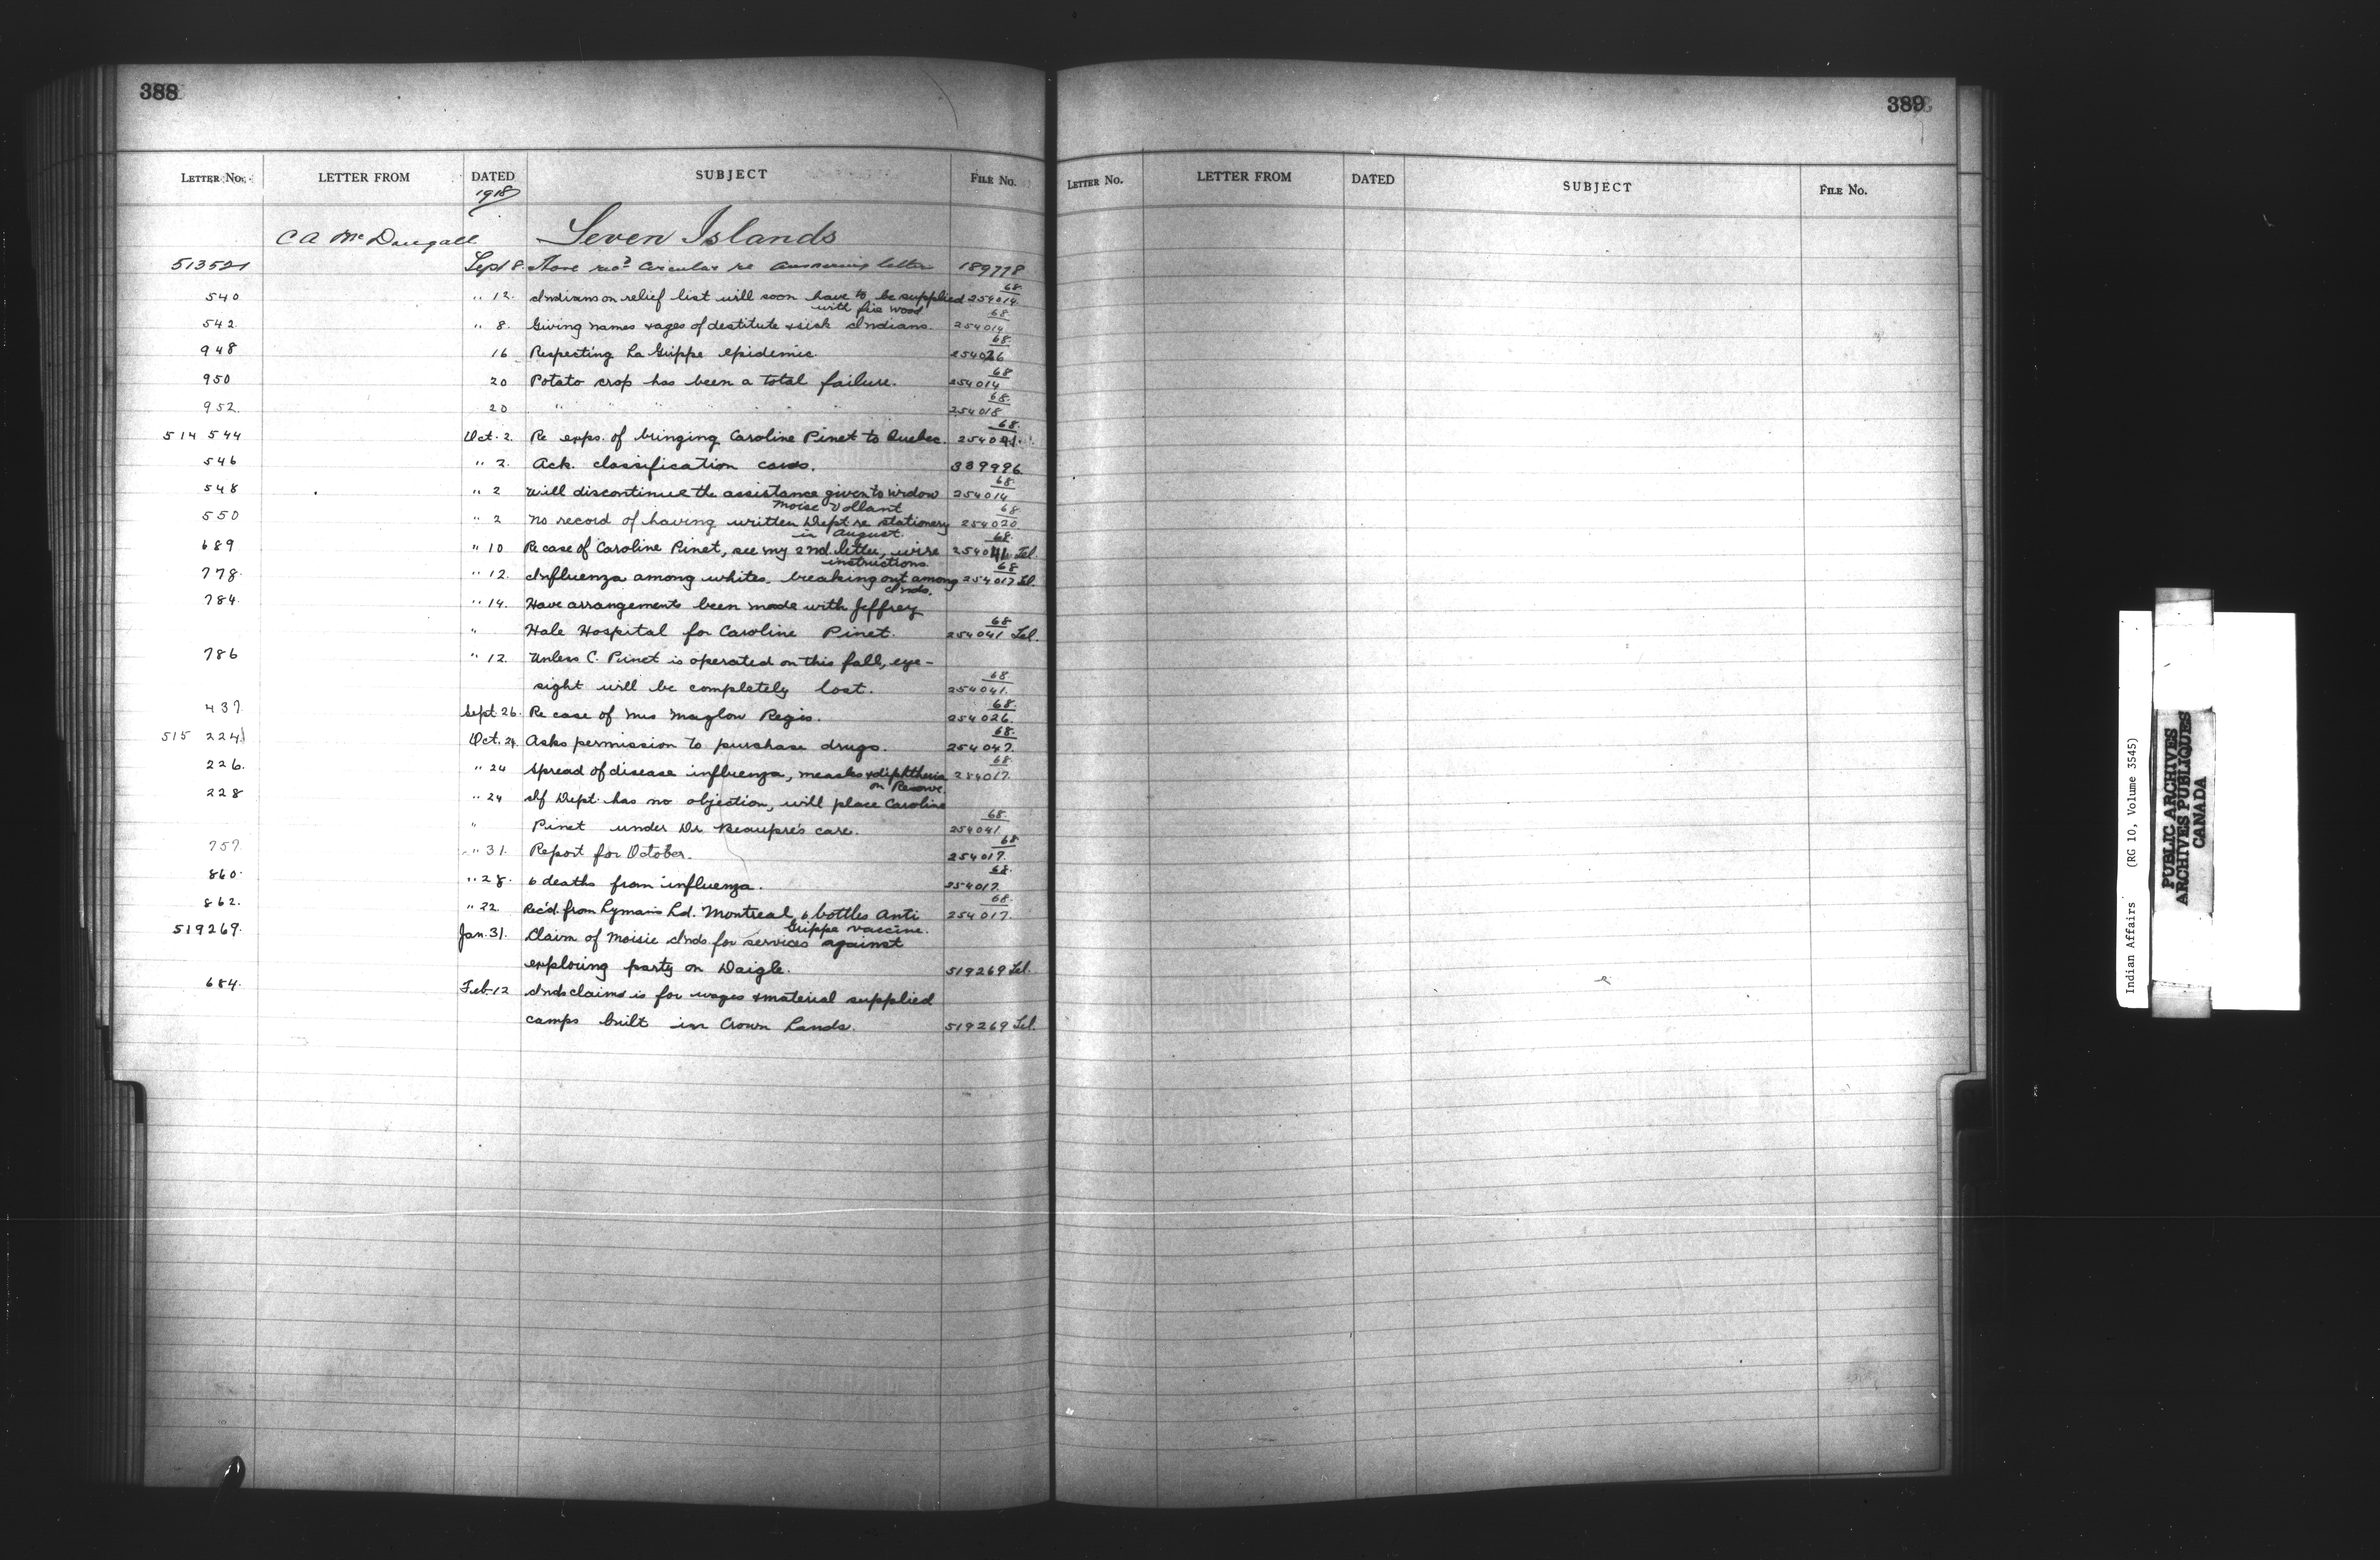 388
LETTER NO. LETTER FROM DATED SUBJECT FILE NO.
1918
C A McDougall Seven Islands
513521 Sept 8. Have rec'd Circular re answering letter 189778
540 " 12. Indians on relief list will soon have to be supplied 68/254014
with fire wood
542 " 8. Giving names & ages of destitute & sick Indians. 68/254014
948 16 Respecting La Grippe epidemic. 68/254026
950 20 Potato crop has been a total failure. 68/254014
952. 20 " " " " " " 68/254018
514 544 Oct. 2. Re exps. of bringing Caroline Pinet to Quebec. 68/254041
546 " 2. Ack. classification cards. 339996
548 " 2 Will discontinue the assistance given to Widow 68/254014
Moise Vollant
550 " 2 No record of having written Dept re stationery 68/254020
in August.
689 " 10 Re case of Caroline Pinet, see my 2nd. letter, wire 68/254041 Tel.
instructions
778. " 12. Influenza among whites, breaking out among 68/254017 Tel.
Inds.
784. " 14. Have arrangements been made with Jeffrey
" Hale Hospital for Caroline Pinet. 68/254041 Tel.
786 " 12. Unless C. Pinet is operated on this fall, eye-
sight will be completely lost. 68/254041.
437 Sept 26. Re case of Mrs Maglow Regis. 68/254026.
515 224 Oct. 24 Asks permission to purchase drugs. 68/254047.
226. " 24 Spread of disease influenza, measles & diphtheria 68/254017.
on Reserve.
228 " 24 If Dept. has no objection, will place Caroline
" Pinet under Dr. Beaupre's care. 68/254041
757. " 31. Report for October. 68/254017.
860. " 28. 6 deaths from influenza. 68/254017.
862. " 22. Rec'd. from Lymans Ld. Montreal 6 bottles Anti 68/254017.
Grippe vaccine.
519269. Jan. 31. Claim of Moisie Inds for services against
exploring party on Daigle. 519269 Tel.
684. Feb-12 Inds claims is for wages & material supplied
camps built in Crown Lands. 519269 Tel.
389
LETTER NO. LETTER FROM DATED SUBJECT FILE NO.
Indian Affairs (RG 10, Volume 3545)
PUBLIC ARCHIVES
ARCHIVES PUBLIQUES
CANADA